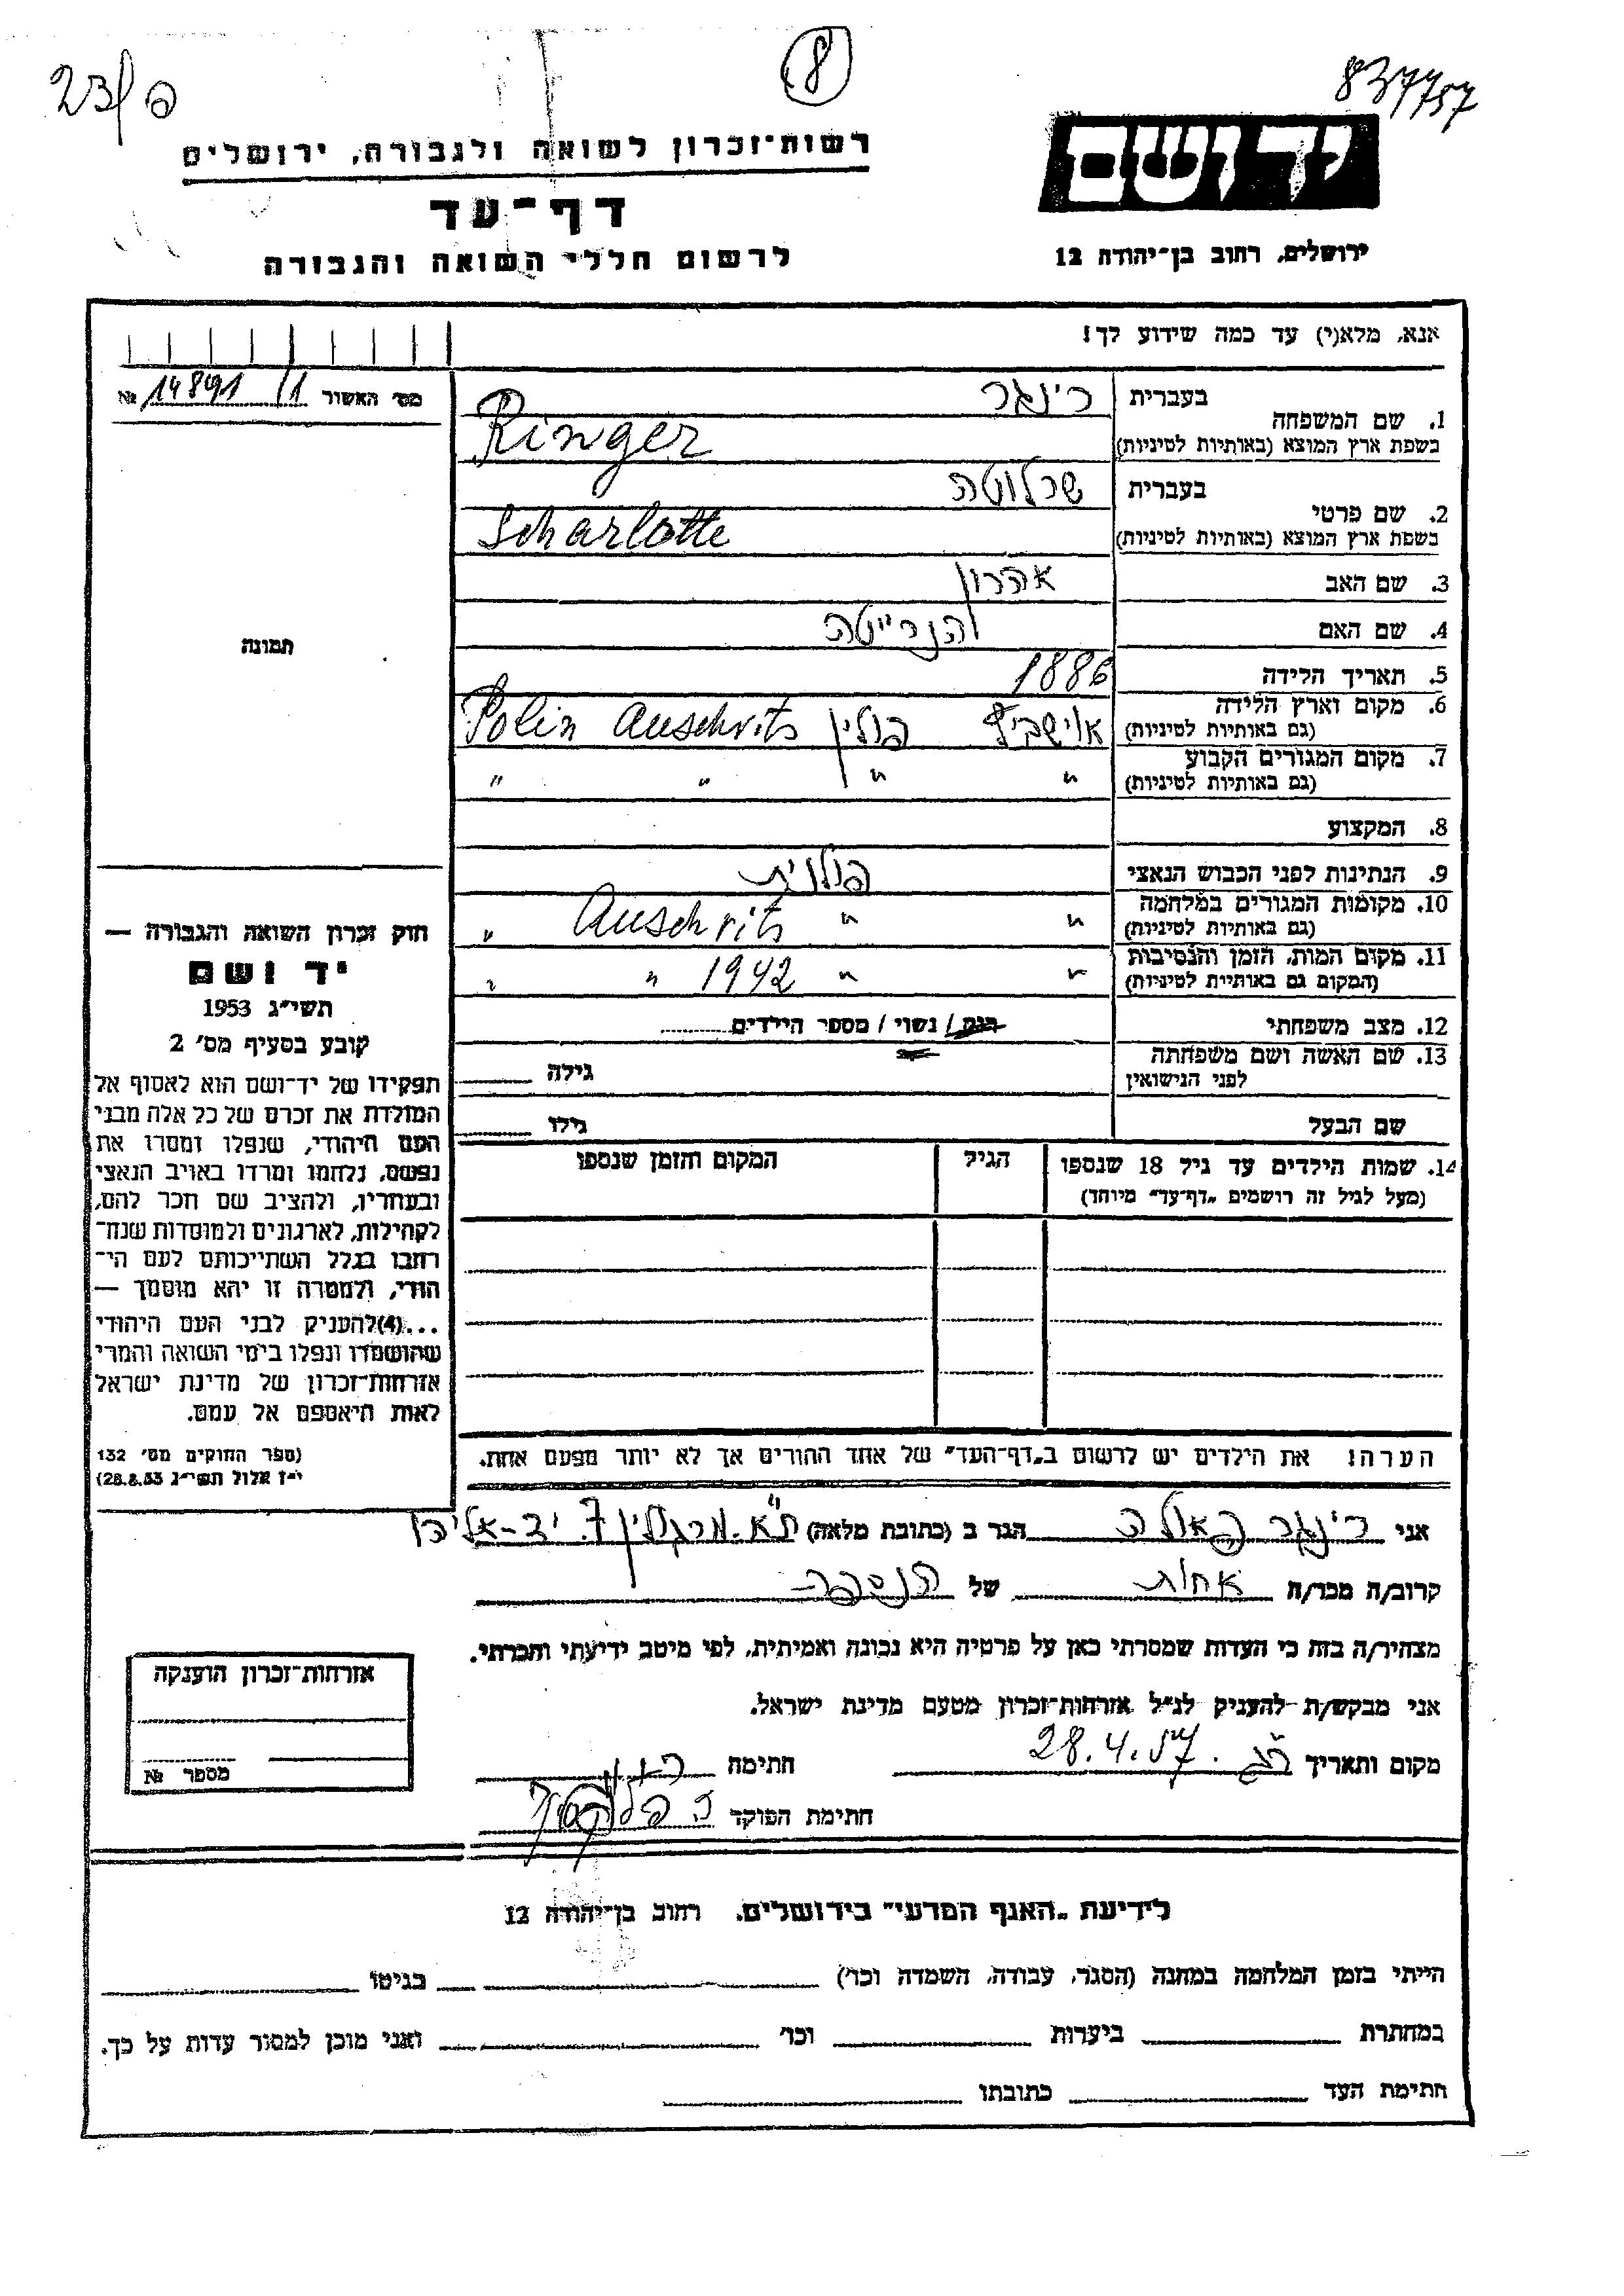 23/פ
8
837757
יד ושם
ירושלים, רחוב בן־יהודה 12
רשות־זכרון לשואה ולגבורה, ירושלים
דף־עד
לרשום חללי השואה והגבורה
אנא, מלא(י) עד כמה שידוע לך!
מס׳ האשור 14891/1 №
תמונה
בעברית רינגר
1. שם המשפחה
בשפת ארץ המוצא (באותיות לטיניות) Ringer
בעברית שרלוטה
2. שם פרטי
בשפת ארץ המוצא (באותיות לטיניות) Scharlotte
3. שם האב אהרון
4. שם האם הנרייטה
5. תאריך הלידה 1886
6. מקום וארץ הלידה
(גם באותיות לטיניות) אוישביץ פולין Auschvits Polin
7. מקום המגורים הקבוע
(גם באותיות לטיניות) " " " "
8. המקצוע
9. הנתינות לפני הכבוש הנאצי פולנית
10. מקומות המגורים במלחמה
(גם באותיות לטיניות) " " Auschvits "
11. מקום המות, הזמן והנסיבות
(המקום גם באותיית לטיניות) " " 1942 " "
12. מצב משפחתי רווק / נשוי / מספר הילדים
13. שם האשה ושם משפחתה
לפני הנישואין גילה
שם הבעל גילו
14. שמות הילדים עד גיל 18 שנספו הגיל המקום והזמן שנספו
(מעל לגיל זה רושמים „דף־עד״ מיוחד)
חוק זכרון השואה והגבורה —
יד ושם
תשי״ג 1953
קובע בסעיף מס׳ 2
תפקידו של יד־ושם הוא לאסוף אל
המולדת את זכרם של כל אלה מבני
העם היהודי, שנפלו ומסרו את
נפשם, נלחמו ומרדו באויב הנאצי
ובעוזריו, ולהציב שם וזכר להם,
לקהילות, לארגונים ולמוסדות שנח־
רבו בגלל השתייכותם לעם הי־
הודי, ולמטרה זו יהא מוסמך —
...(4) להעניק לבני העם היהודי
שהושמדו ונפלו בימי השואה והמרי
אזרחות־זכרון של מדינת ישראל
לאות היאספם אל עמם.
(ספר החוקים מס׳ 132
י״ז אלול תשי״ג 28.8.53)
הערה: את הילדים יש לרשום ב„דף־העד״ של אחד ההורים אך לא יותר מפעם אחת.
אני רינגר פאולה הגר ב (כתובת מלאה) ת״א. מרגולין 7. יד-אליהו
קרוב/ה מכר/ה אחות של הנספה
מצהיר/ה בזה כי העדות שמסרתי כאן על פרטיה היא נכונה ואמיתית, לפי מיטב ידיעתי והכרתי.
אני מבקש/ת להעניק לנ״ל אזרחות־זכרון מטעם מדינת ישראל.
מקום ותאריך 28.4.57 חתימה
חתימת הפוקד
אזרחות־זכרון הוענקה
מספר №
לידיעת „האגף המדעי״ בירושלים. רחוב בן־יהודה 12
הייתי בזמן המלחמה במחנה (הסגר, עבודה, השמדה וכו׳) בגיטו
במחתרת ביערות וכו׳ ואני מוכן למסור עדות על כך.
חתימת העד כתובתו